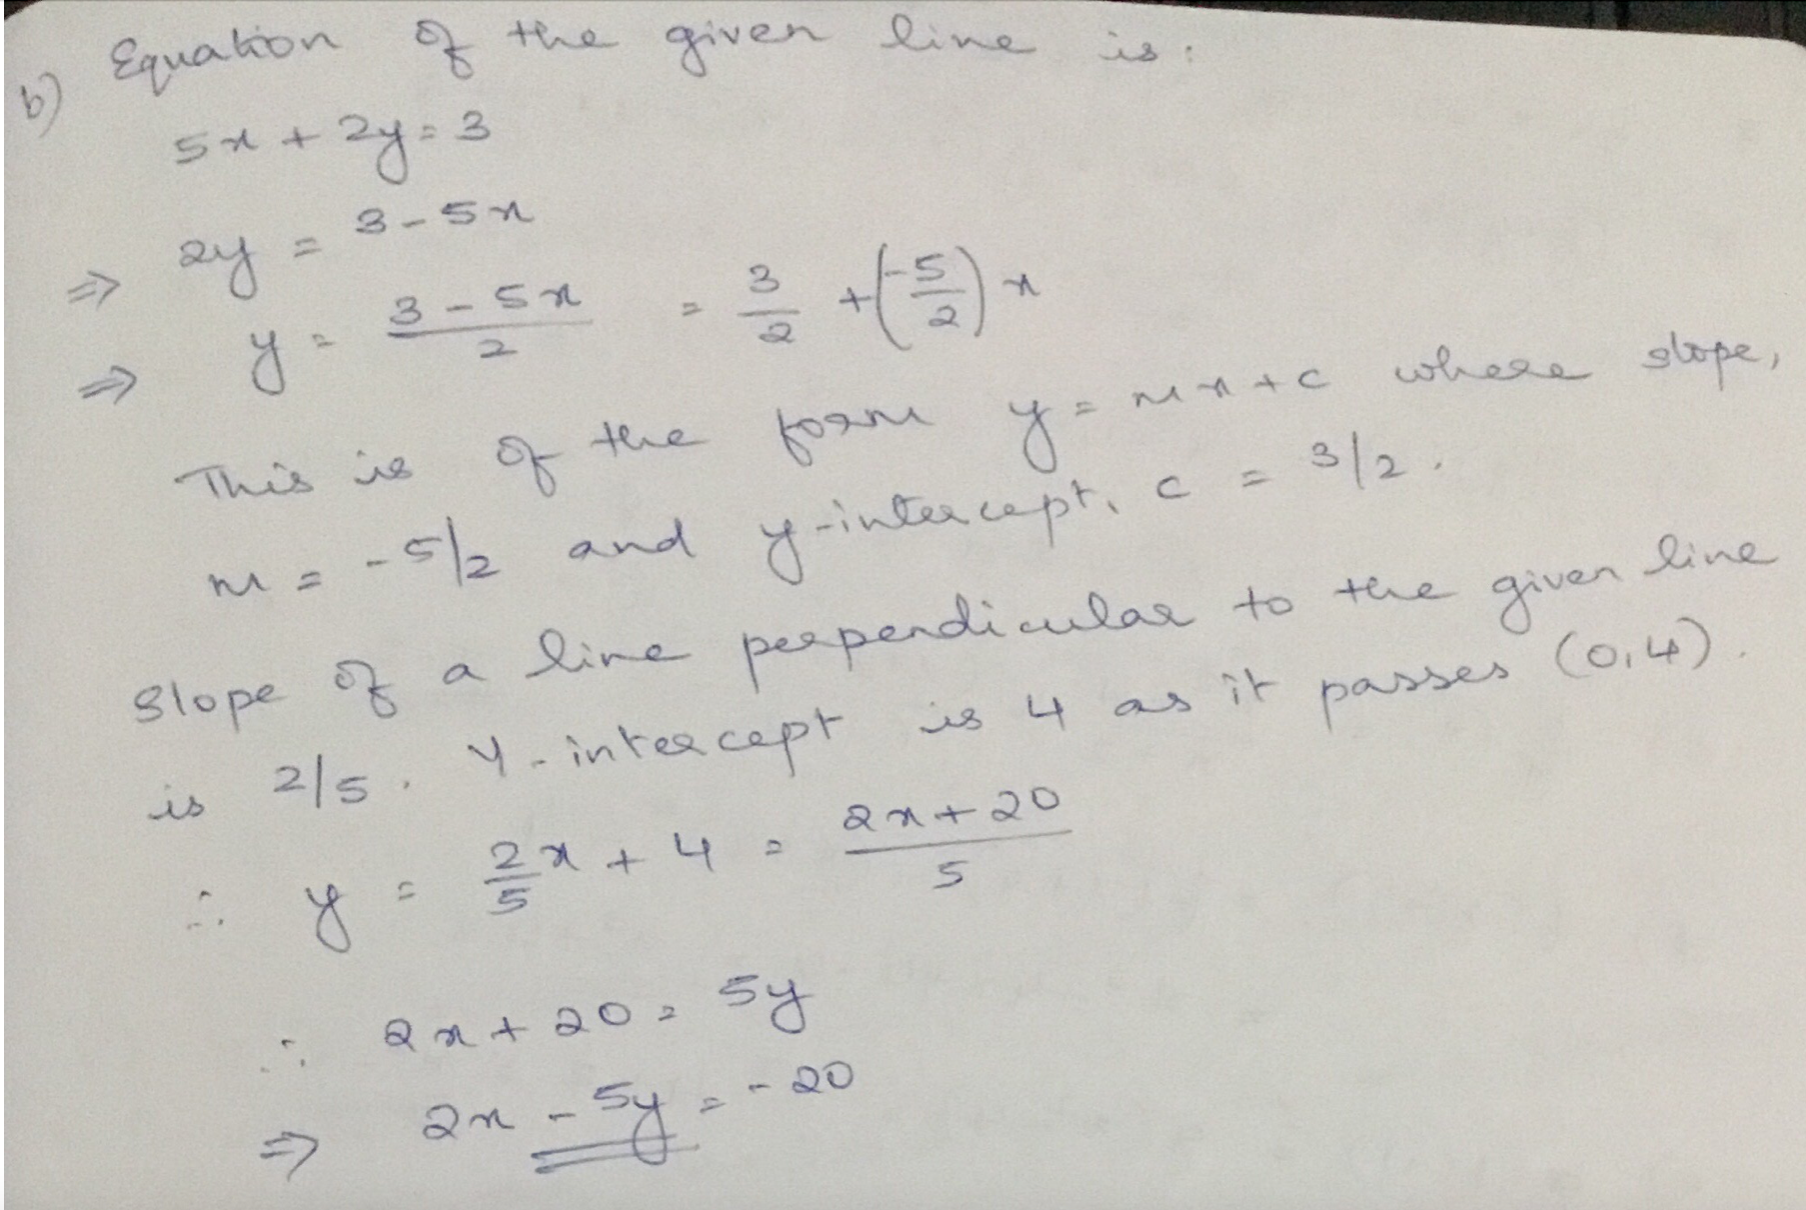 b) Equation of the given line is:
5x + 2y = 3
⇒ 2y = 3 - 5x
⇒ y = (3 - 5x)/2 = 3/2 + (-5/2) x
This is of the form y = mx + c where slope,
m = -5/2 and y-intercept, c = 3/2.
Slope of a line perpendicular to the given line
is 2/5. Y-intercept is 4 as it passes (0,4).
∴ y = 2/5 x + 4 = (2x + 20)/5
∴ 2x + 20 = 5y
⇒ 2x - 5y = -20